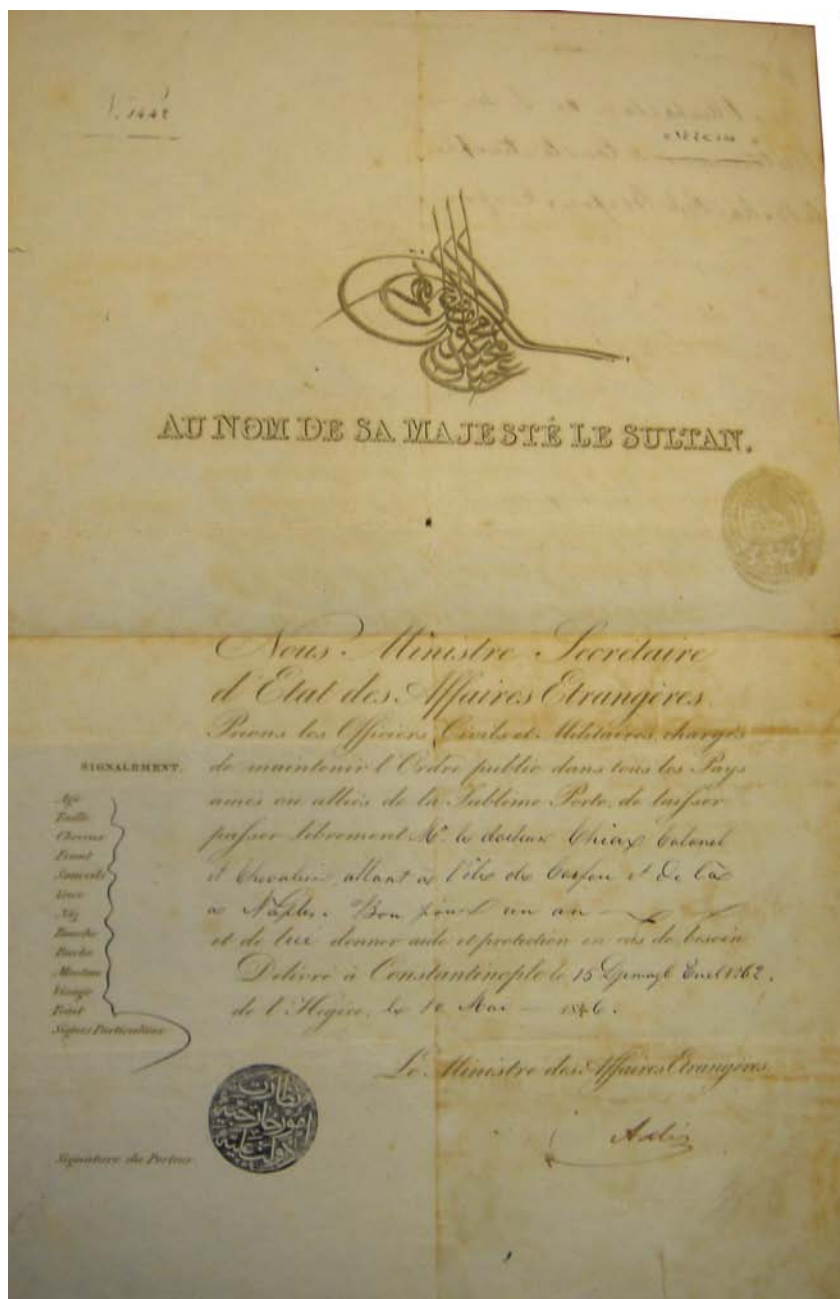 AU NOM DE SA MAJESTÉ LE SULTAN.
Nous Ministre Secrétaire
d'Etat des Affaires Etrangères
Prions les Officiers Civils et Militaires chargés
de maintenir l'Ordre public dans tous les Pays
amis ou alliés de la Sublime Porte, de laisser
passer librement Mr. le docteur Colonel
et Chevalier, allant à l'île de Corfou et de là
à Naples. Bon pour un an
et de lui donner aide et protection en cas de besoin
Délivré à Constantinople le 15 1262.
de l'Hegire, le 10 Mai 1846.
Le Ministre des Affaires Etrangères
SIGNALEMENT.
Age
Taille
Cheveux
Front
Sourcils
Yeux
Nez
Bouche
Barbe
Menton
Visage
Teint
Signes Particuliers
نظارت
امور خارجيه
دولت عليه
Signature du Porteur